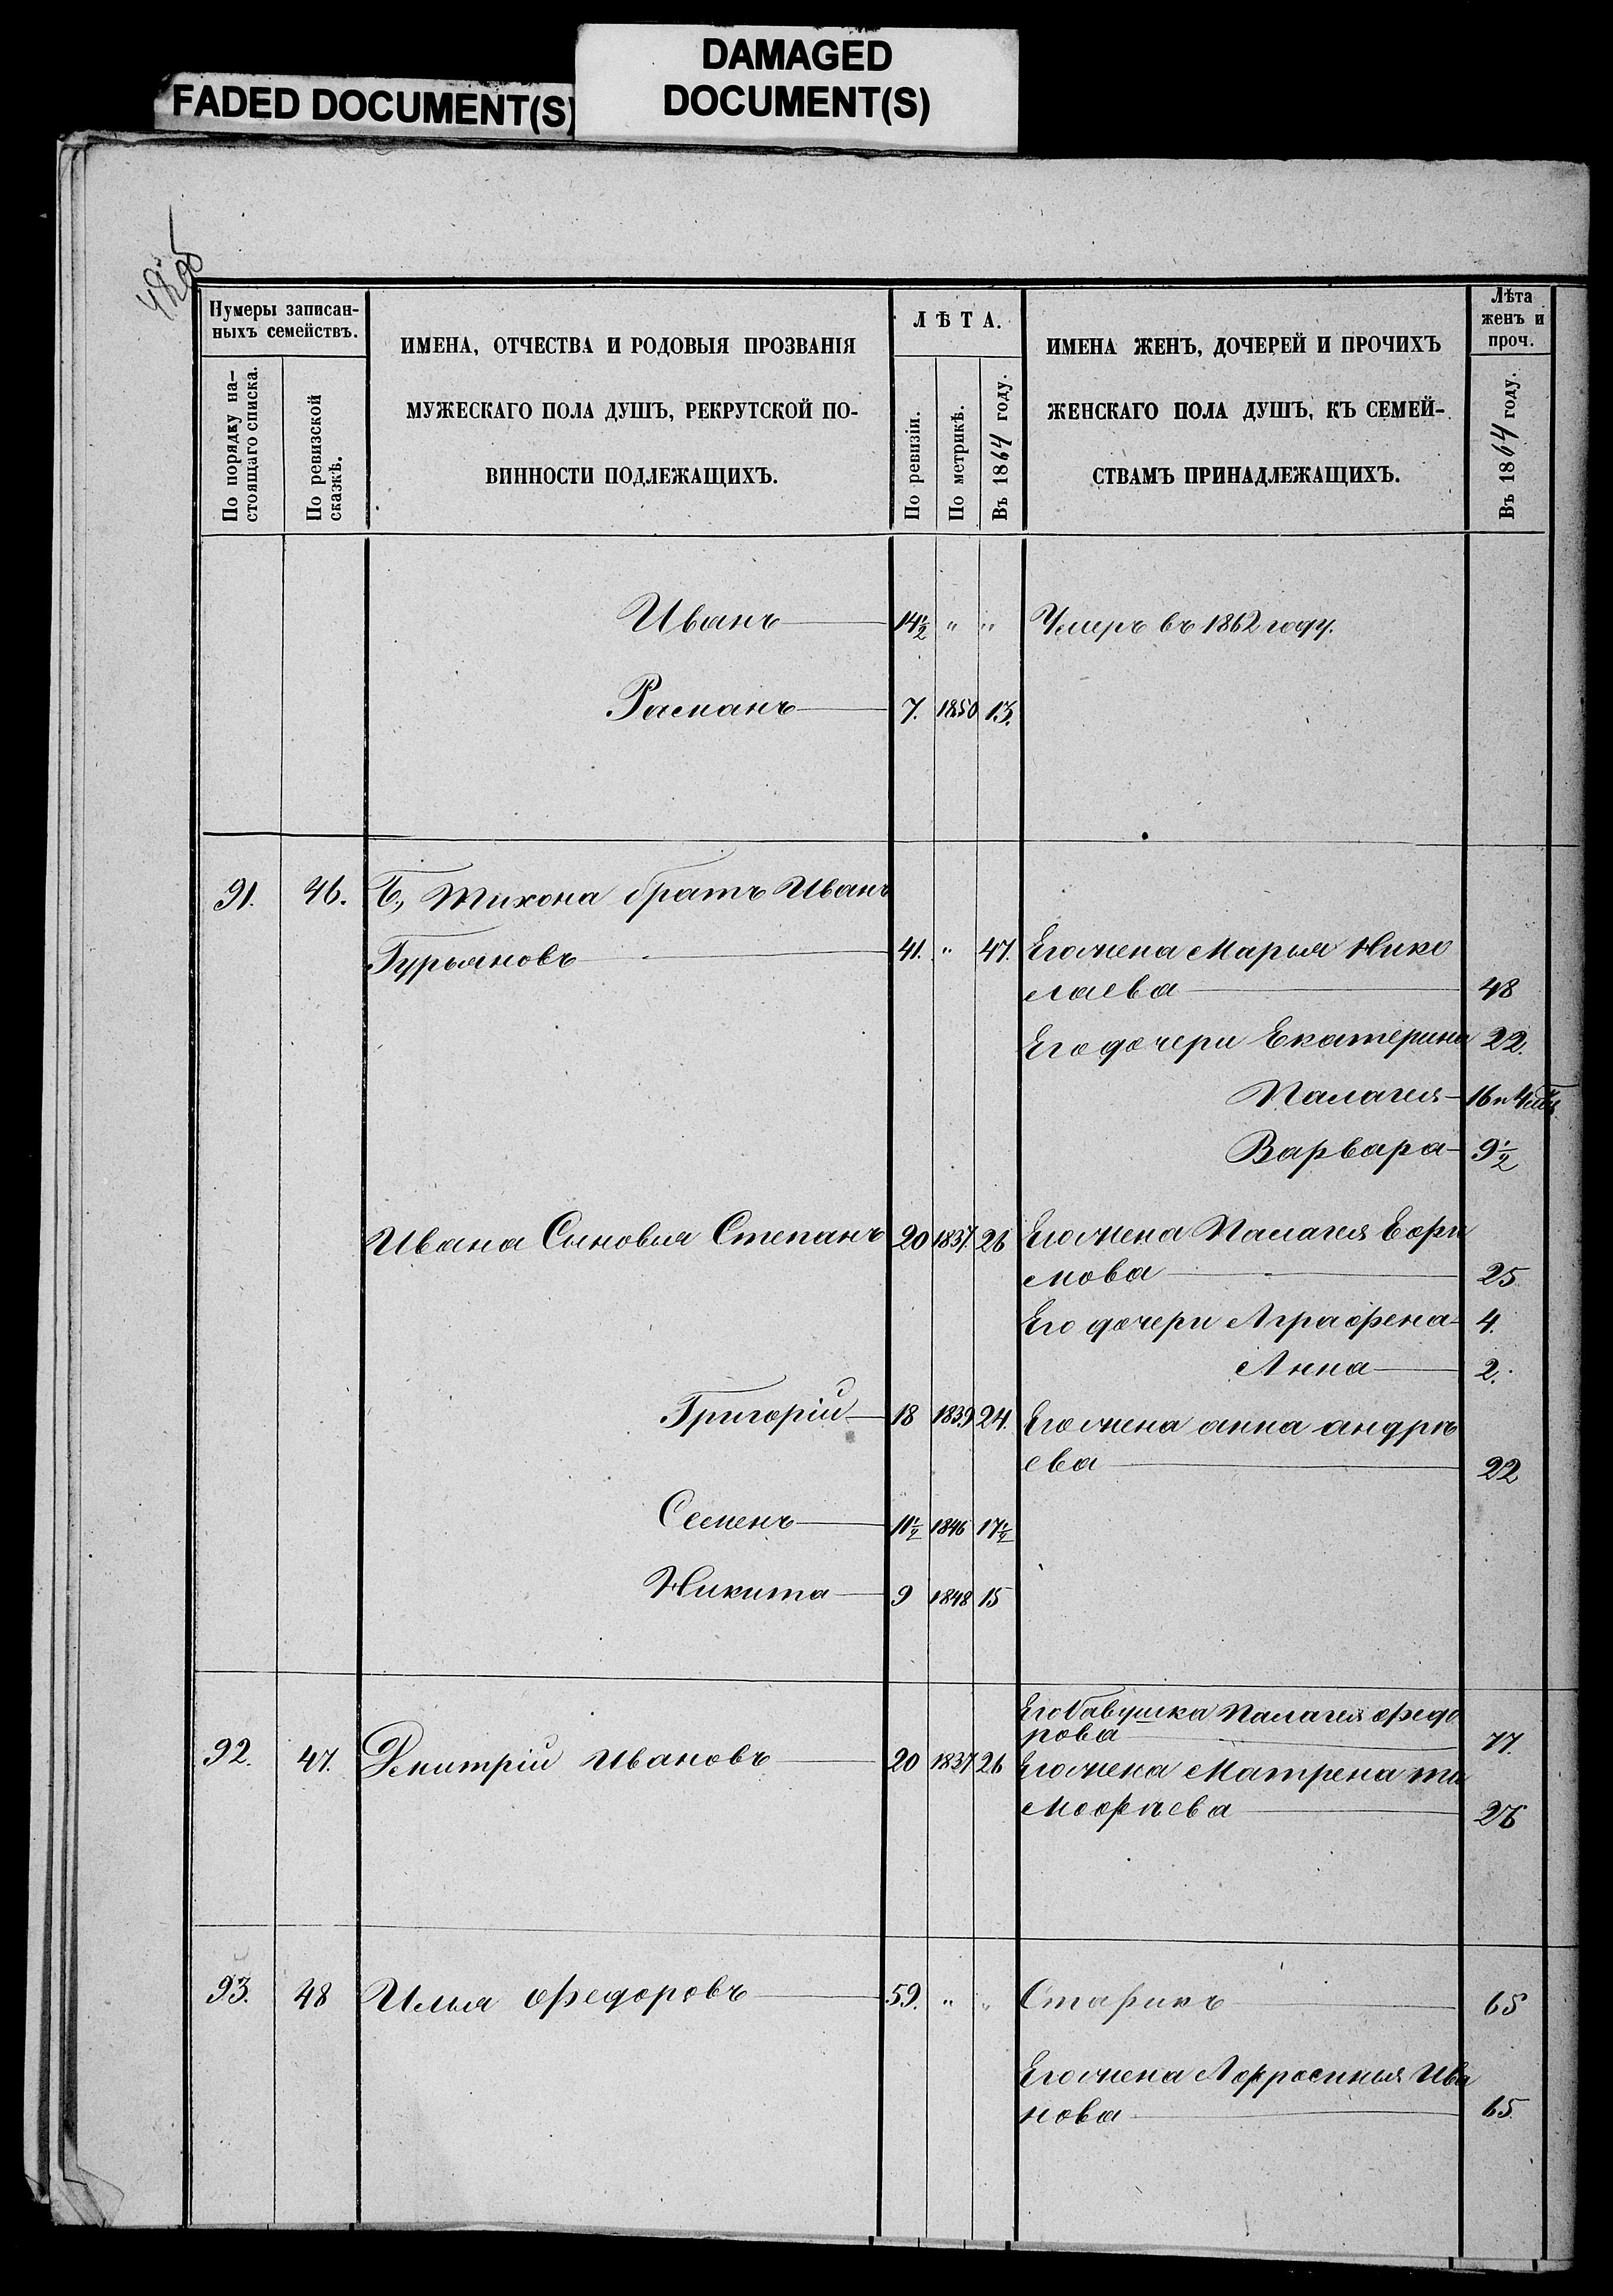 DAMAGED
DOCUMENT(S)
FADED DOCUMENT(S)
Нумеры записан-
ныхъ семействъ.
По порядку на-
стоящаго списка.
По ревизской
сказкѣ.
ИМЕНА, ОТЧЕСТВА И РОДОВЫЯ ПРОЗВАНІЯ
МУЖЕСКАГО ПОЛА ДУШЪ, РЕКРУТСКОЙ ПО-
ВИННОСТИ ПОДЛЕЖАЩИХЪ.
ЛѢТА.
По ревизіи.
По метрикѣ.
Въ 1864 году.
ИМЕНА ЖЕНЪ, ДОЧЕРЕЙ И ПРОЧИХЪ
ЖЕНСКАГО ПОЛА ДУШЪ, КЪ СЕМЕЙ-
СТВАМЪ ПРИНАДЛЕЖАЩИХЪ.
Лѣта
женъ и
проч.
Въ 1864 году.
Иванъ 14½ " " Умеръ въ 1862 году.
Раманъ 7. 1850 13.
91. 46. Б., Тихона братъ Иванъ
Гурьяновъ 41. " 47. Его жена Марья Нико
лаева 48
Его дочери Екатерина 22.
Палагея 16 и 4 мѣс
Варвара 9½
Ивана Сыновья Степанъ 20 1837. 26 Его жена Палагея Ефи
мова 25
Его дочери Аграфена 4.
Анна 2.
Григорій 18 1839 24. Его жена анна андрѣ
ева 22
Семенъ 11½ 1846 17½
Никита 9 1848 15
Его бабушка Палагея федо
рова 77.
92. 47. Дмитрій Ивановъ 20 1837 26 Его жена Матрена ти
мофѣева 26
93. 48 Илья федоровъ 59. " " Старикъ 65
Его жена Афросинья Ива
нова 65